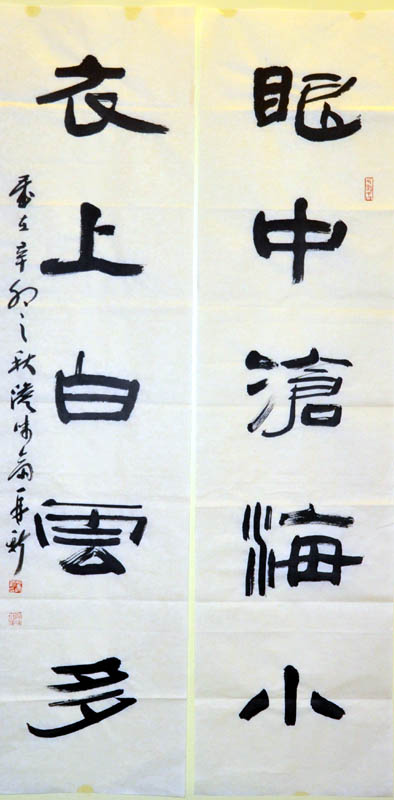 眼中滄海小
衣上白雲多
歲在辛卯之秋